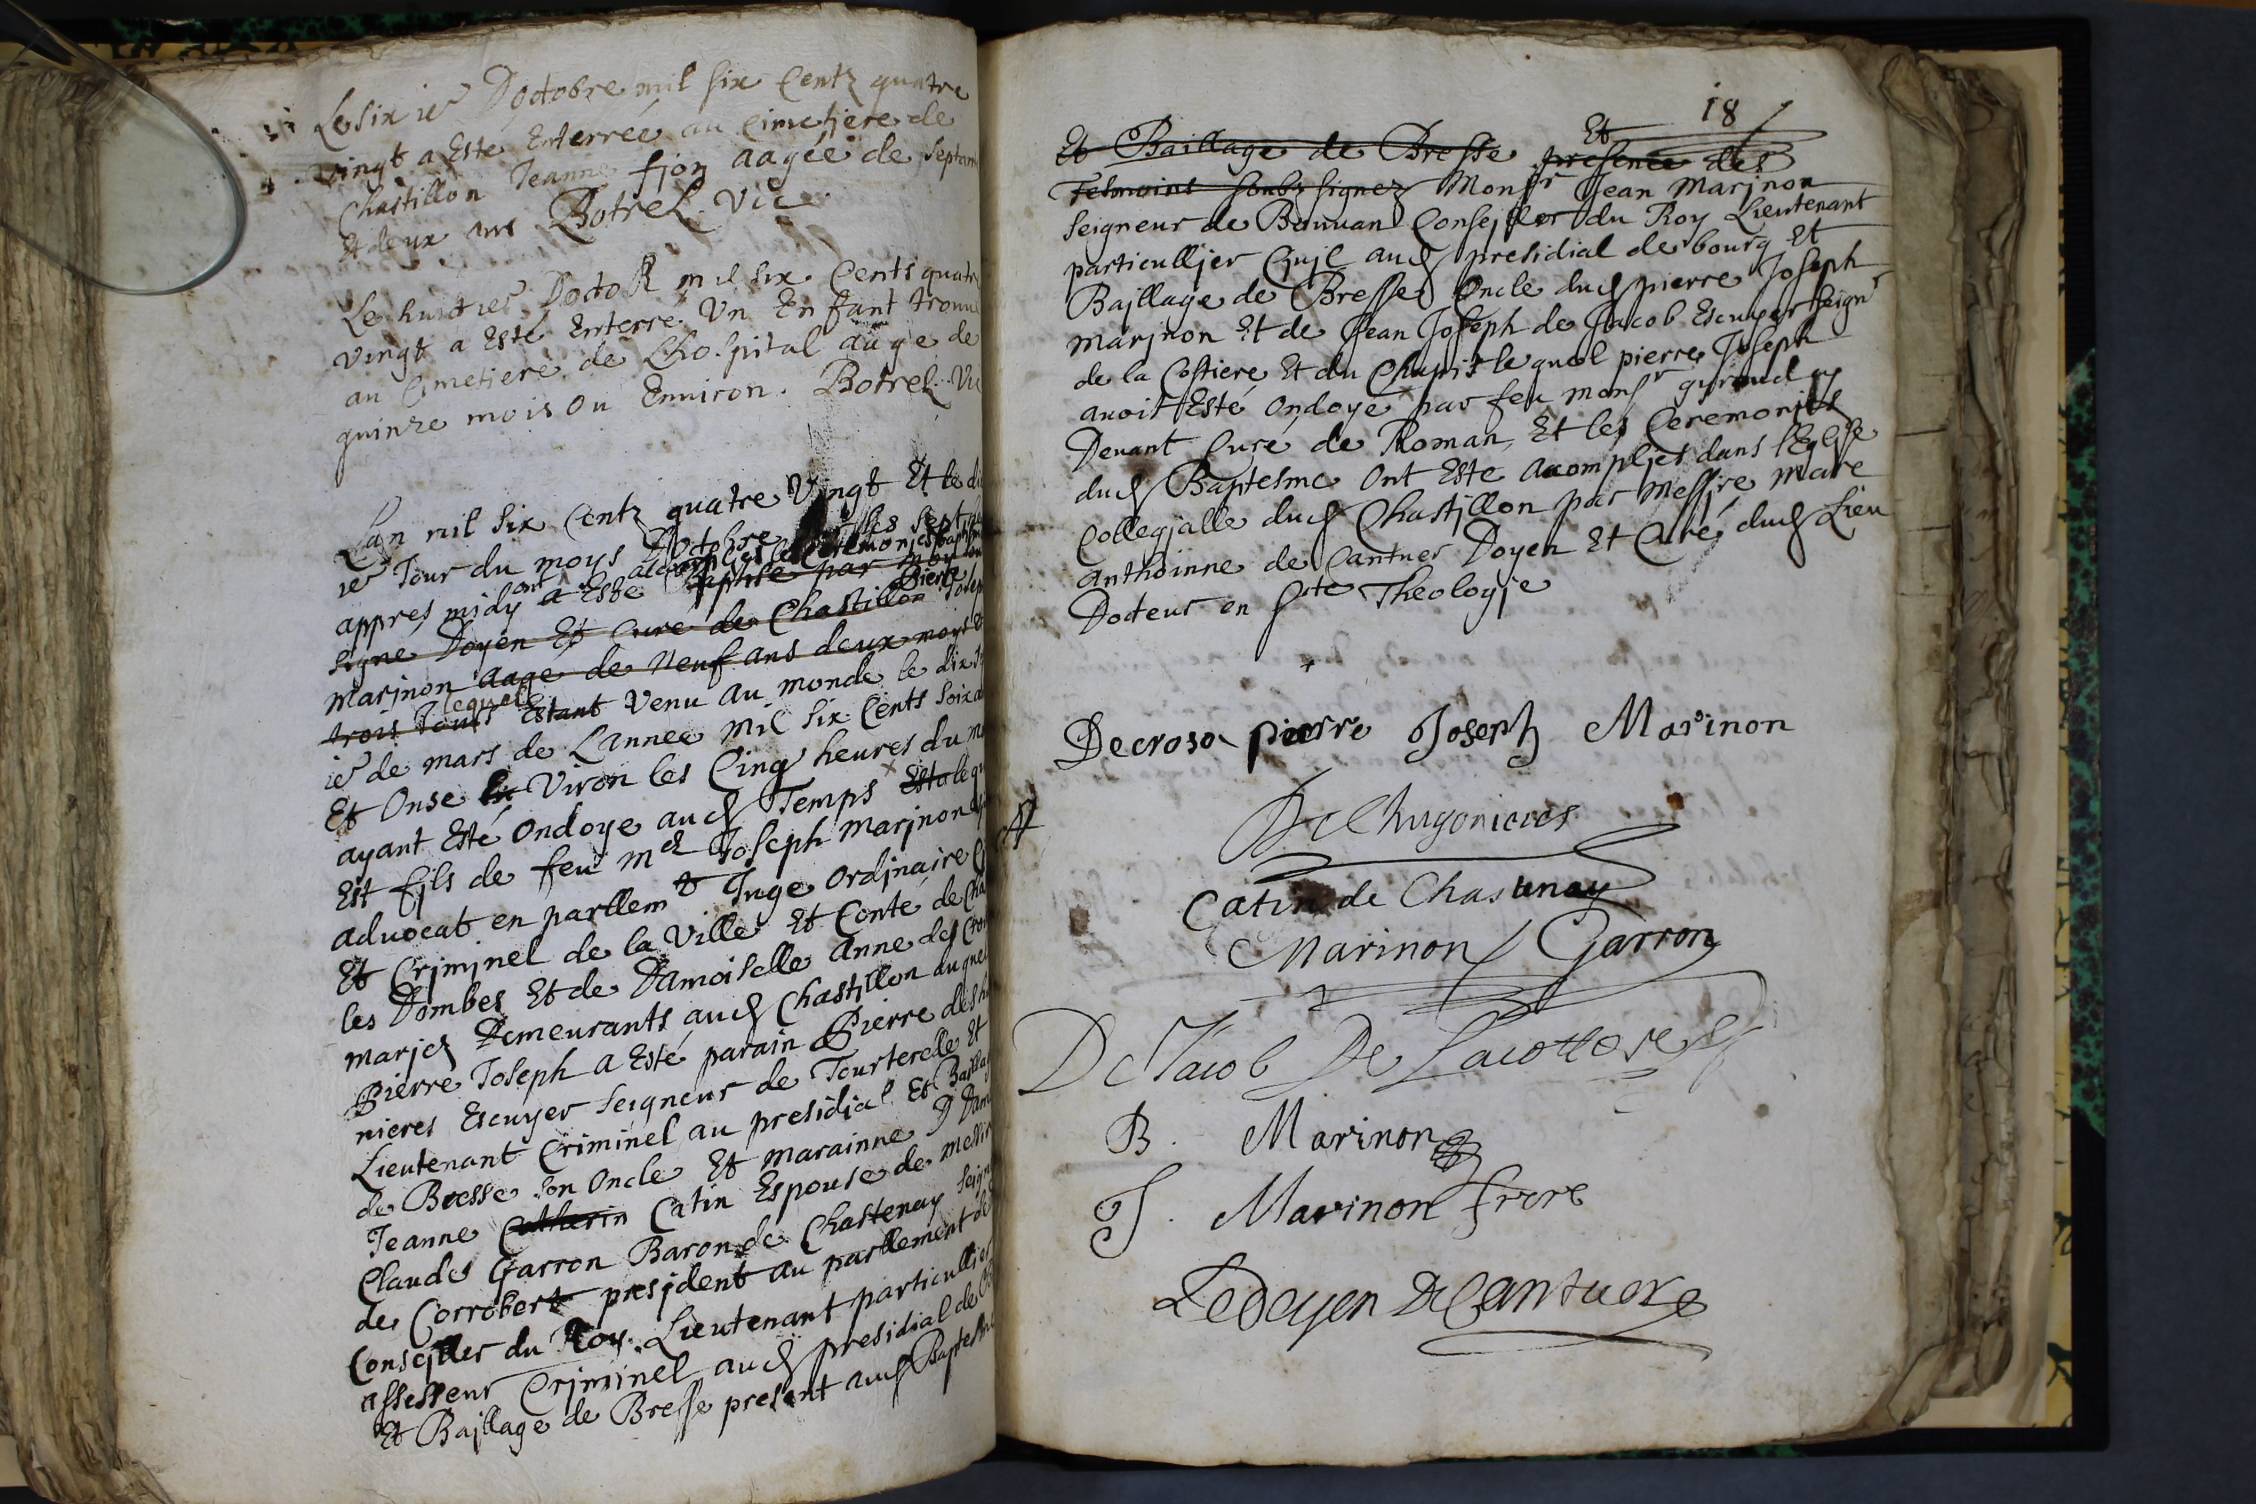 Le six ie Doctobre mil six Centz quatre
vingt a Esté Enterrée au Cimetiere de
Chastillon Jeanne fjon aagée de septan
Et deux ans Botrel. Vic
Le huict ie Docto mil six Cents quatr
vingt a Esté Enterré Un Enffant trouu
au Cimetiere de Lhospital aage de
quinze mois ou Enuiron. Botrel Vic
Lan mil six Centz quatre Vingt Et le di
ie Jour du moys Doctobre les sept
appres midy ont Esté accomplies les Ceremonies Baptise par moy
signé Doyen Et Curé de Chastillon Pierre Josep
Marjnon aage de Neuf ans deux moys
trois Jours lequel Estant Venu au monde le dix
ie de mars de Lannee mil six Cents soixa
Et Onse En Viron les Cinq heures du m
ayant Esté Ondoye aud Temps Esta le qu
Est fjls de feu Me Joseph Marjnon
aduocat en parllemt Juge Ordjnaire
Et Crjmjnel de la Ville Et Conté de Cha
les Dombes Et de Damoiselle Anne de Cro
mariez Demeurants aud Chastjllon duquel
Pierre Joseph a Esté parain Pierre des
nieres Escuyer seigneur de Tourterelle Et
Lieutenant Criminel au presidjal Et Bailla
de Bresse son Oncle Et marainne D Dam
Jeanne Catherin Catin Espouse de Messir
Claude Garron Baron de Chastenay seign
de Corrobert presjdent au parllement de
Consejller du Roy. Lieutenant particullier
assesseur Crjminel aud presidial de
Et Bajllage de Bresse present aud Baptesme
18
Et Baillage de Bresse Et presence des
Tesmoins soubz signez Monsr Jean Marjnon
seigneur de Bouuan Consejller du Roy Lieutenant
particulljer Cjuil aud presidial de bourg Et
Bajllage de Bresse Oncle dud pierre Joseph
Marjnon Et de Jean Joseph de Jacob Escuyer seignr
de la Costiere Et du Chapit le quel pierre Joseph
auoit Esté Ondoye par feu monsr gyroud cy
Deuant Curé de Roman, Et les Ceremonjes
dud Baptesme Ont Esté Acompljes dans lEglise
Collegjalle dud Chastjllon par Messjre Marc
Anthoinne de Cantuer Doyen Et Curé dud Lieu
Docteur en ste Theologje
Decrosa pierre Joseph Marinon
De Chugonieres
Catin de Chastenay
Marinon Garron
De Jacob De Lacottiere
B. Marinon
J. Marinon frere
Le doyen De Cantuere